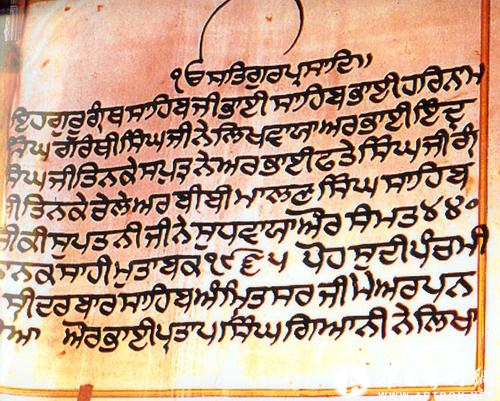 ੴ ਸਤਿਗੁਰਪ੍ਰਸਾਦਿ॥
ਇਹ ਗੁਰੂ ਗ੍ਰੰਥ ਸਾਹਿਬ ਜੀ ਭਾਈ ਸਾਹਿਬ ਭਾਈ ਹਰਿਨਾਮ
ਸਿੰਘ ਗਰੰਥੀ ਸਿੰਘ ਜੀ ਨੇ ਲਿਖਵਾਯਾ ਅਰ ਭਾਈ ਇੰਦ੍ਰ
ਸਿੰਘ ਜੀ ਤਿਨਕੇ ਸਪੁੜ ਨੇ ਅਰ ਭਾਈ ਫਤੇ ਸਿੰਘ ਜੀ ਗ੍ਰੰ
ਜੀ ਤਿਨਕੇ ਚੇਲੇ ਅਰ ਬੀਬੀ ਮਾਲਣ ਸਿੰਘ ਸਾਹਿਬ
ਜੀ ਕੀ ਸੁਪਤਨੀ ਜੀ ਨੇ ਸੁਧਵਾਯਾ ਔਰ ਸੰਮਤ ੪੪੦
ਨਾਨਕ ਸਾਹੀ ਮੁਤਾਬਕ ੧੯੬੫ ਪੋਹ ਸੁਦੀ ਪੰਚਮੀ
ਸ੍ਰੀ ਦਰਬਾਰ ਸਾਹਿਬ ਅੰਮ੍ਰਿਤਸਰ ਜੀ ਮੇਂ ਅਰਪਨ
ਔਰ ਭਾਈ ਪ੍ਰਤਾਪ ਸਿੰਘ ਗਿਆਨੀ ਨੇ ਲਿਖਾ